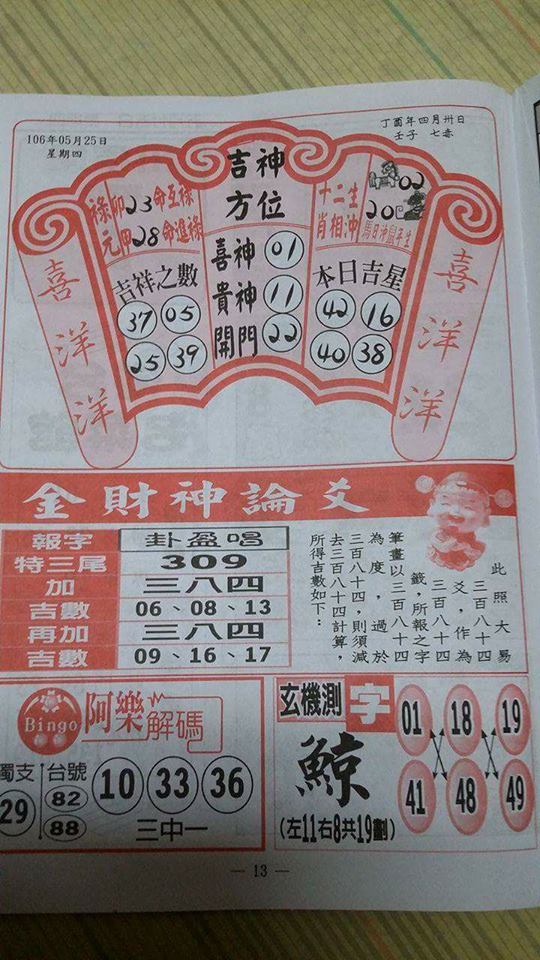 106年05月25日
星期四
丁酉年四月卅日
壬子 七赤
吉神
方位
祿卯23命互祿
元甲28命進祿
十二生
肖相沖
02
20
馬日沖鼠年生
喜神 01
貴神 11
開門 22
吉祥之數
37 05
25 39
本日吉星
42 16
40 38
喜洋洋
喜洋洋
金財神論爻
報字 卦盈唱
特三尾 309
加 三八四
吉數 06、08、13
再加 三八四
吉數 09、16、17
此照大易
三百八十四
爻，作為
三百八十四
籤，所報之字
筆畫以三百八十四
為度，過於
三百八十四，則須減
去三百八十四計算，
所得吉數如下：
Bingo
阿樂解碼
獨支 29
台號 82 88
10 33 36
三中一
玄機測字
鯨
(左11右8共19劃)
01 18 19
41 48 49
— 13 —